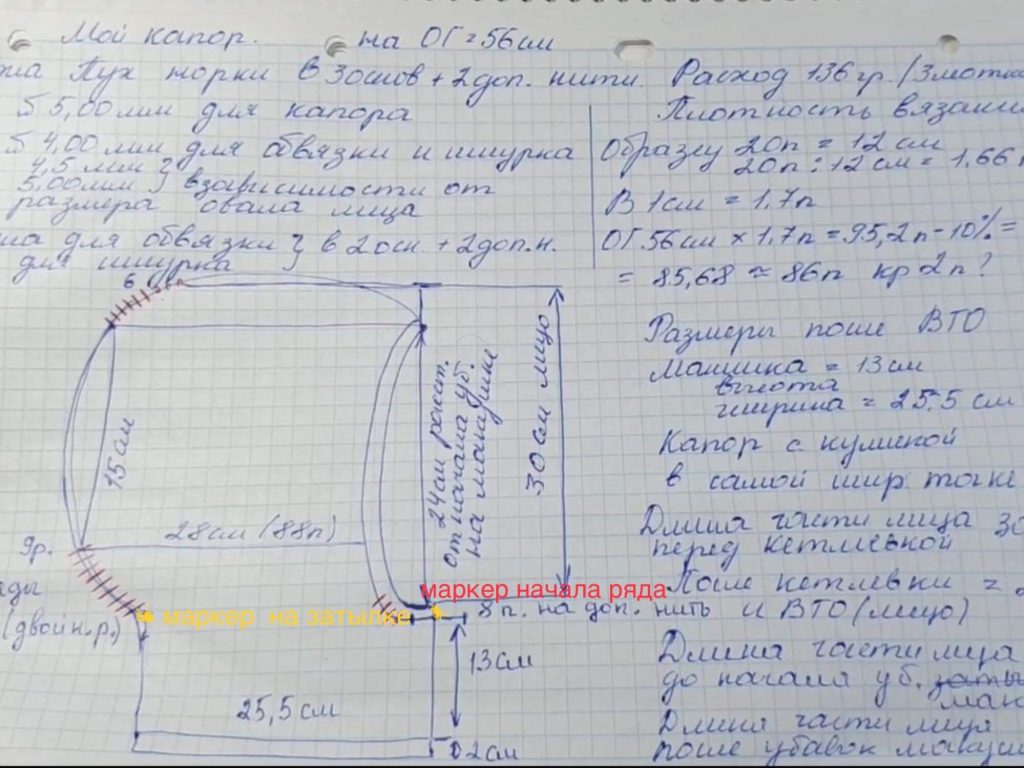 Мой капор. на ОГ=56см
Пух норки в 3основ+2доп. нити. Расход 136гр./3мотка
5,00мм для капора
4,00мм для обвязки и шнурка
4,5мм
5,00мм } взависимости от
размера овала лица
для обвязки } в 2осн.+2доп.н.
для шнурка
Плотность вязания
Образец 20п = 12см
20п : 12см = 1,66п
В 1см = 1,7п
ОГ.56см × 1,7п = 95,2п - 10% =
= 85,68 ≈ 86п кр 2п?
Размеры после ВТО
Манишка = 13см
высота
ширина = 25,5 см
Капор с кулиской
в самой шир. точке
Длина части лица 30
перед кетлевкой
После кетлевки =
и ВТО (лицо)
Длина части лица
до начала уб. заты
мак
Длина части лица
после убавок макуш
6
15см
28см (88п)
24см расст.
от начала уб.
на макушке
30см лицо
9р.
(двойн.р.)
маркер начала ряда
маркер на затылке
8п. на доп. нить
13см
25,5см
2см